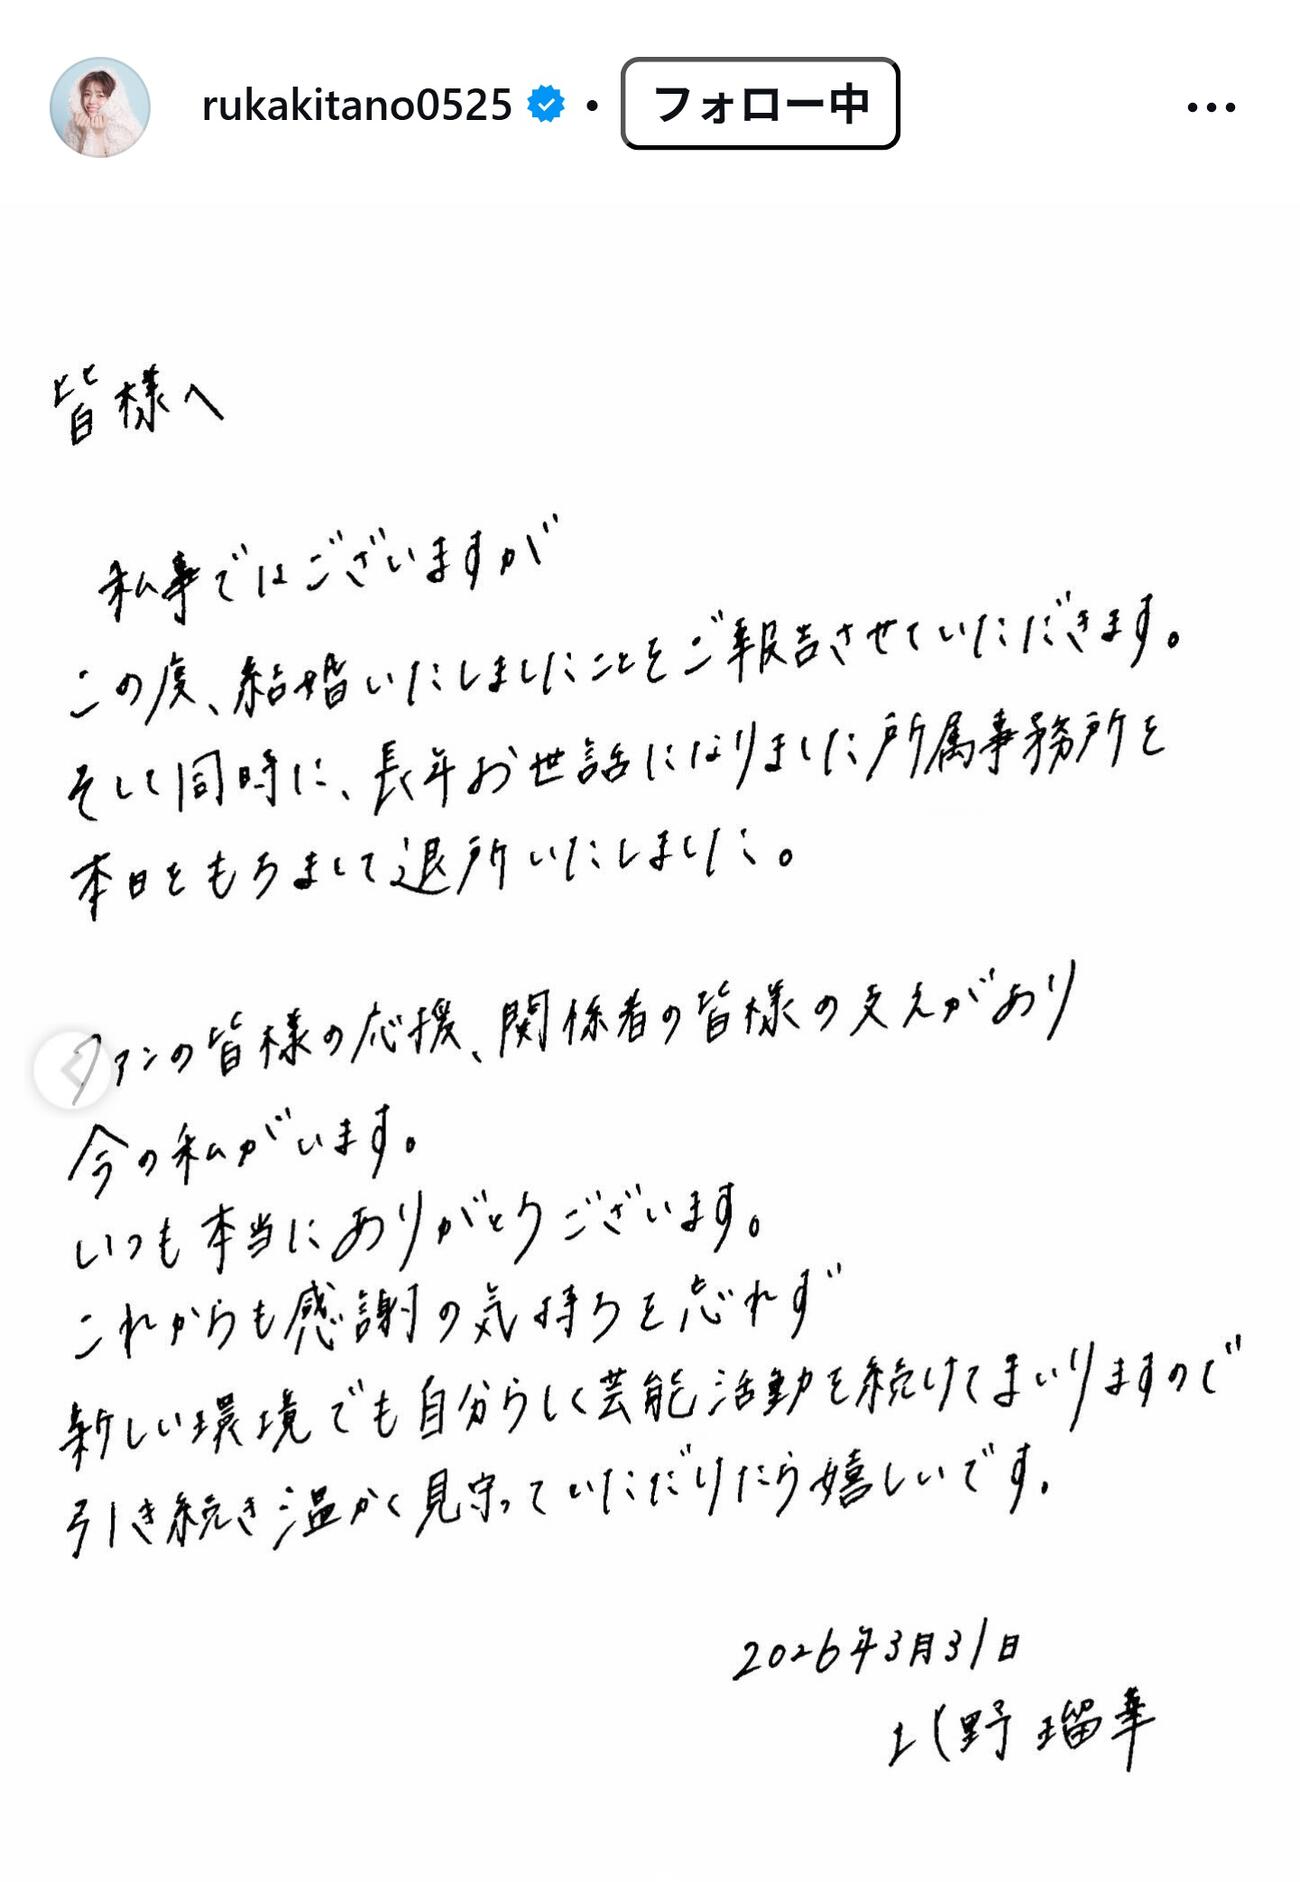 rukakitano0525 • フォロー中
皆様へ
私事ではございますが
この度、結婚いたしましたことをご報告させていただきます。
そして同時に、長年お世話になりました所属事務所を
本日をもちまして退所いたしました。
ファンの皆様の応援、関係者の皆様の支えがあり
今の私がいます。
いつも本当にありがとうございます。
これからも感謝の気持ちを忘れず
新しい環境でも自分らしく芸能活動を続けてまいりますので
引き続き温かく見守っていただけたら嬉しいです。
2026年3月31日
北野瑠華